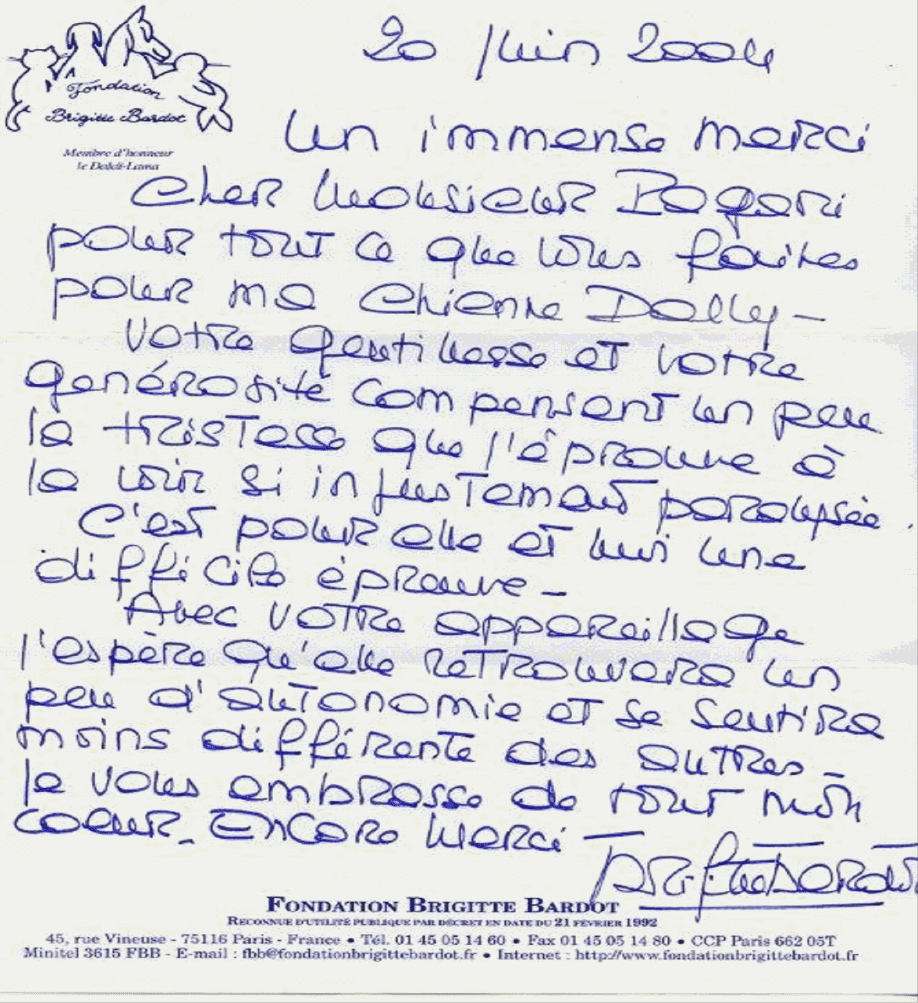 20 juin 2004
Fondation
Brigitte Bardot
Membre d'honneur
le Dalaï-Lama
un immense merci
cher Monsieur Bogari
pour tout ce que vous faites
pour ma chienne Dolly –
Votre gentillesse et votre
générosité compensent un peu
la tristesse que j'éprouve à
la voir si injustement paralysée.
C'est pour elle et moi une
difficile épreuve –
Avec votre appareillage
j'espère qu'elle retrouvera un
peu d'autonomie et se sentira
moins différente des autres –
Je vous embrasse de tout mon
coeur. Encore merci
Brigitte Bardot
FONDATION BRIGITTE BARDOT
RECONNUE D'UTILITÉ PUBLIQUE PAR DÉCRET EN DATE DU 21 FÉVRIER 1992
45, rue Vineuse - 75116 Paris - France • Tél. 01 45 05 14 60 • Fax 01 45 05 14 80 • CCP Paris 662 05T
Minitel 3615 FBB - E-mail : fbb@fondationbrigittebardot.fr • Internet : http://www.fondationbrigittebardot.fr